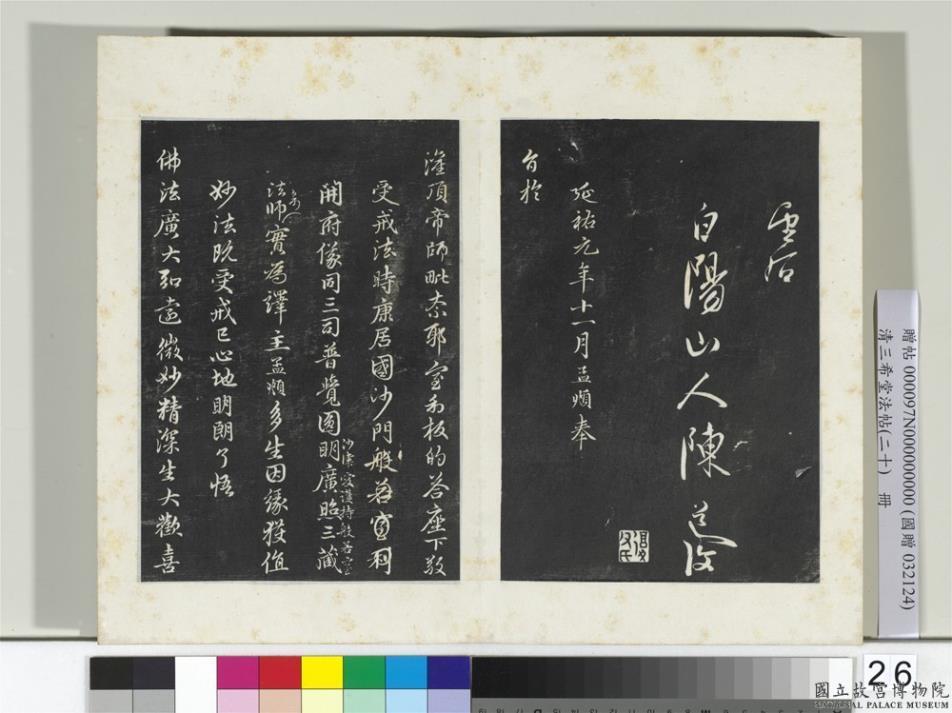 雲石
白陽山人陳道復
延祐元年十一月孟頫奉
旨於
灌頂帝師毗奈耶室利板的荅座下敬
受戒法時康居國沙門般若室利
開府儀同三司普覺圓明廣照三藏
沙津愛護持般若室利
法師實為譯主孟頫多生因緣獲值
妙法既受戒已心地明朗了悟
佛法廣大弘遠微妙精深生大歡喜
贈帖 000097N000000000 (國贈 032124)
清三希堂法帖(二十) 冊
26
國立故宮博物院
NATIONAL PALACE MUSEUM